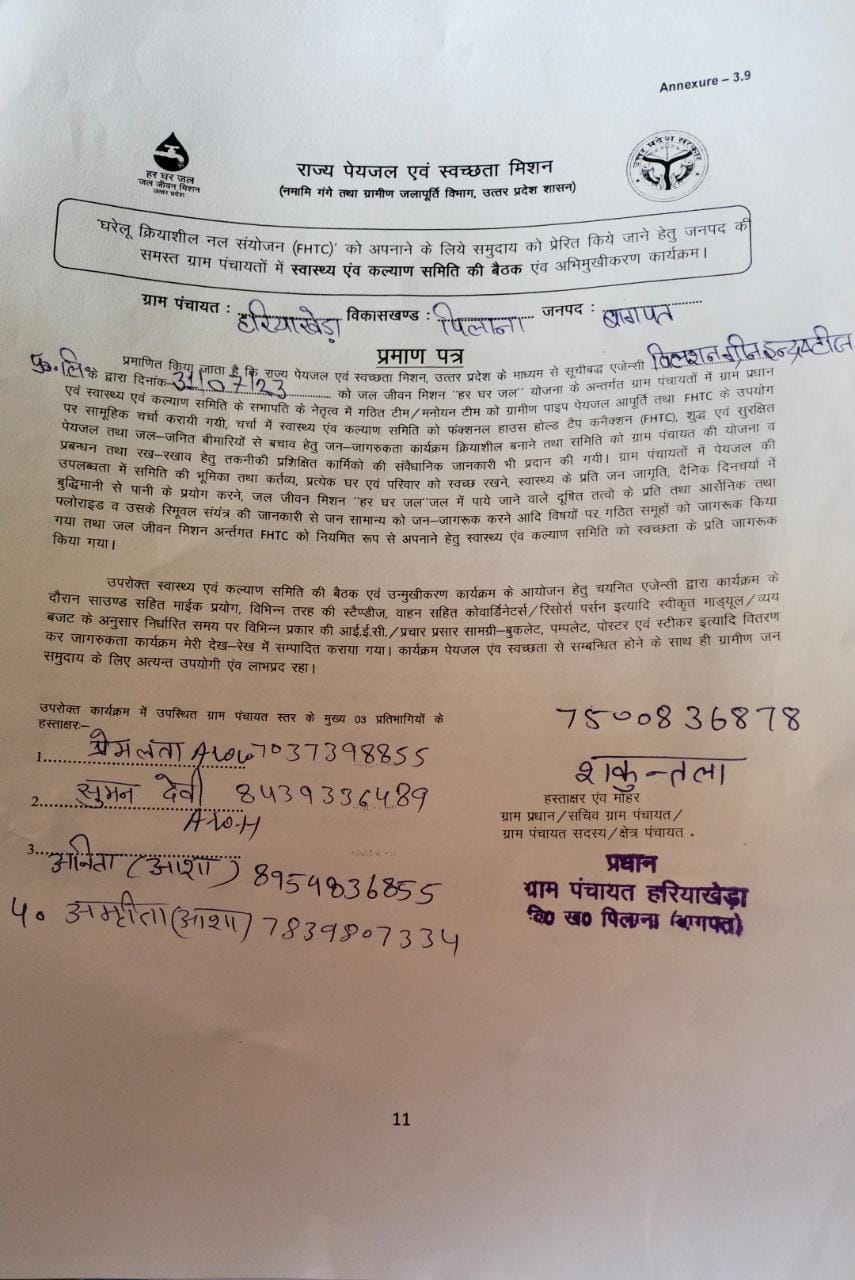 Annexure – 3.9
हर घर जल
जल जीवन मिशन
उत्तर प्रदेश
उत्तर प्रदेश सरकार
राज्य पेयजल एवं स्वच्छता मिशन
(नमामि गंगे तथा ग्रामीण जलापूर्ति विभाग, उत्तर प्रदेश शासन)
'घरेलू क्रियाशील नल संयोजन (FHTC)' को अपनाने के लिये समुदाय को प्रेरित किये जाने हेतु जनपद की
समस्त ग्राम पंचायतों में स्वास्थ्य एंव कल्याण समिति की बैठक एंव अभिमुखीकरण कार्यक्रम।
ग्राम पंचायत : हरियाखेड़ा विकासखण्ड : पिलाना जनपद : बागपत
प्रमाण पत्र
प्रमाणित किया जाता है कि राज्य पेयजल एवं स्वच्छता मिशन, उत्तर प्रदेश के माध्यम से सूचीबद्ध एजेन्सी
प्रा. लि. के द्वारा दिनांक 31/07/23 को जल जीवन मिशन "हर घर जल" योजना के अन्तर्गत ग्राम पंचायतों में ग्राम प्रधान
एवं स्वास्थ्य एवं कल्याण समिति के सभापति के नेतृत्व में गठित टीम/मनोयन टीम को ग्रामीण पाइप पेयजल आपूर्ति तथा FHTC के उपयोग
पर सामूहिक चर्चा करायी गयी, चर्चा में स्वास्थ्य एंव कल्याण समिति को फंक्शनल हाउस होल्ड टैप कनैक्शन (FHTC), शुद्ध एवं सुरक्षित
पेयजल तथा जल–जनित बीमारियों से बचाव हेतु जन–जागरुकता कार्यक्रम क्रियाशील बनाने तथा समिति को ग्राम पंचायत की योजना व
प्रबन्धन तथा रख–रखाव हेतु तकनीकी प्रशिक्षित कार्मिको की संवैधानिक जानकारी भी प्रदान की गयी। ग्राम पंचायतों में पेयजल की
उपलब्धता में समिति की भूमिका तथा कर्तव्य, प्रत्येक घर एवं परिवार को स्वच्छ रखने, स्वास्थ्य के प्रति जन जागृति, दैनिक दिनचर्या में
बुद्धिमानी से पानी के प्रयोग करने, जल जीवन मिशन "हर घर जल"जल में पाये जाने वाले दूषित तत्वो के प्रति तथा आर्सेनिक तथा
फ्लोराइड व उसके रिमूवल संयंत्र की जानकारी से जन सामान्य को जन–जागरूक करने आदि विषयों पर गठित समूहों को जागरूक किया
गया तथा जल जीवन मिशन अर्न्तगत FHTC को नियमित रूप से अपनाने हेतु स्वास्थ्य एंव कल्याण समिति को स्वच्छता के प्रति जागरूक
किया गया।
उपरोक्त स्वास्थ्य एवं कल्याण समिति की बैठक एवं उन्मुखीकरण कार्यक्रम के आयोजन हेतु चयनित एजेन्सी द्वारा कार्यक्रम के
दौरान साउण्ड सहित माईक प्रयोग, विभिन्न तरह की स्टैण्डीज, वाहन सहित कोवार्डिनेटर्स/रिसोर्स पर्सन इत्यादि स्वीकृत माड्यूल/व्यय
बजट के अनुसार निर्धारित समय पर विभिन्न प्रकार की आई.ई.सी./प्रचार प्रसार सामग्री–बुकलेट, पम्पलेट, पोस्टर एवं स्टीकर इत्यादि वितरण
कर जागरुकता कार्यक्रम मेरी देख–रेख में सम्पादित कराया गया। कार्यक्रम पेयजल एंव स्वच्छता से सम्बन्धित होने के साथ ही ग्रामीण जन
समुदाय के लिए अत्यन्त उपयोगी एंव लाभप्रद रहा।
उपरोक्त कार्यक्रम में उपस्थित ग्राम पंचायत स्तर के मुख्य 03 प्रतिभागियों के
हस्ताक्षरः–
1. प्रेमलता 7037398855
2. सुमन देवी 8439336489
3. अनिता (आशा) 8954836855
4. (आशा) 7839807334
7500836878
शकुन्तला
हस्ताक्षर एंव मोहर
ग्राम प्रधान/सचिव ग्राम पंचायत/
ग्राम पंचायत सदस्य/क्षेत्र पंचायत .
प्रधान
ग्राम पंचायत हरियाखेड़ा
वि0 ख0 पिलाना (बागपत)
11